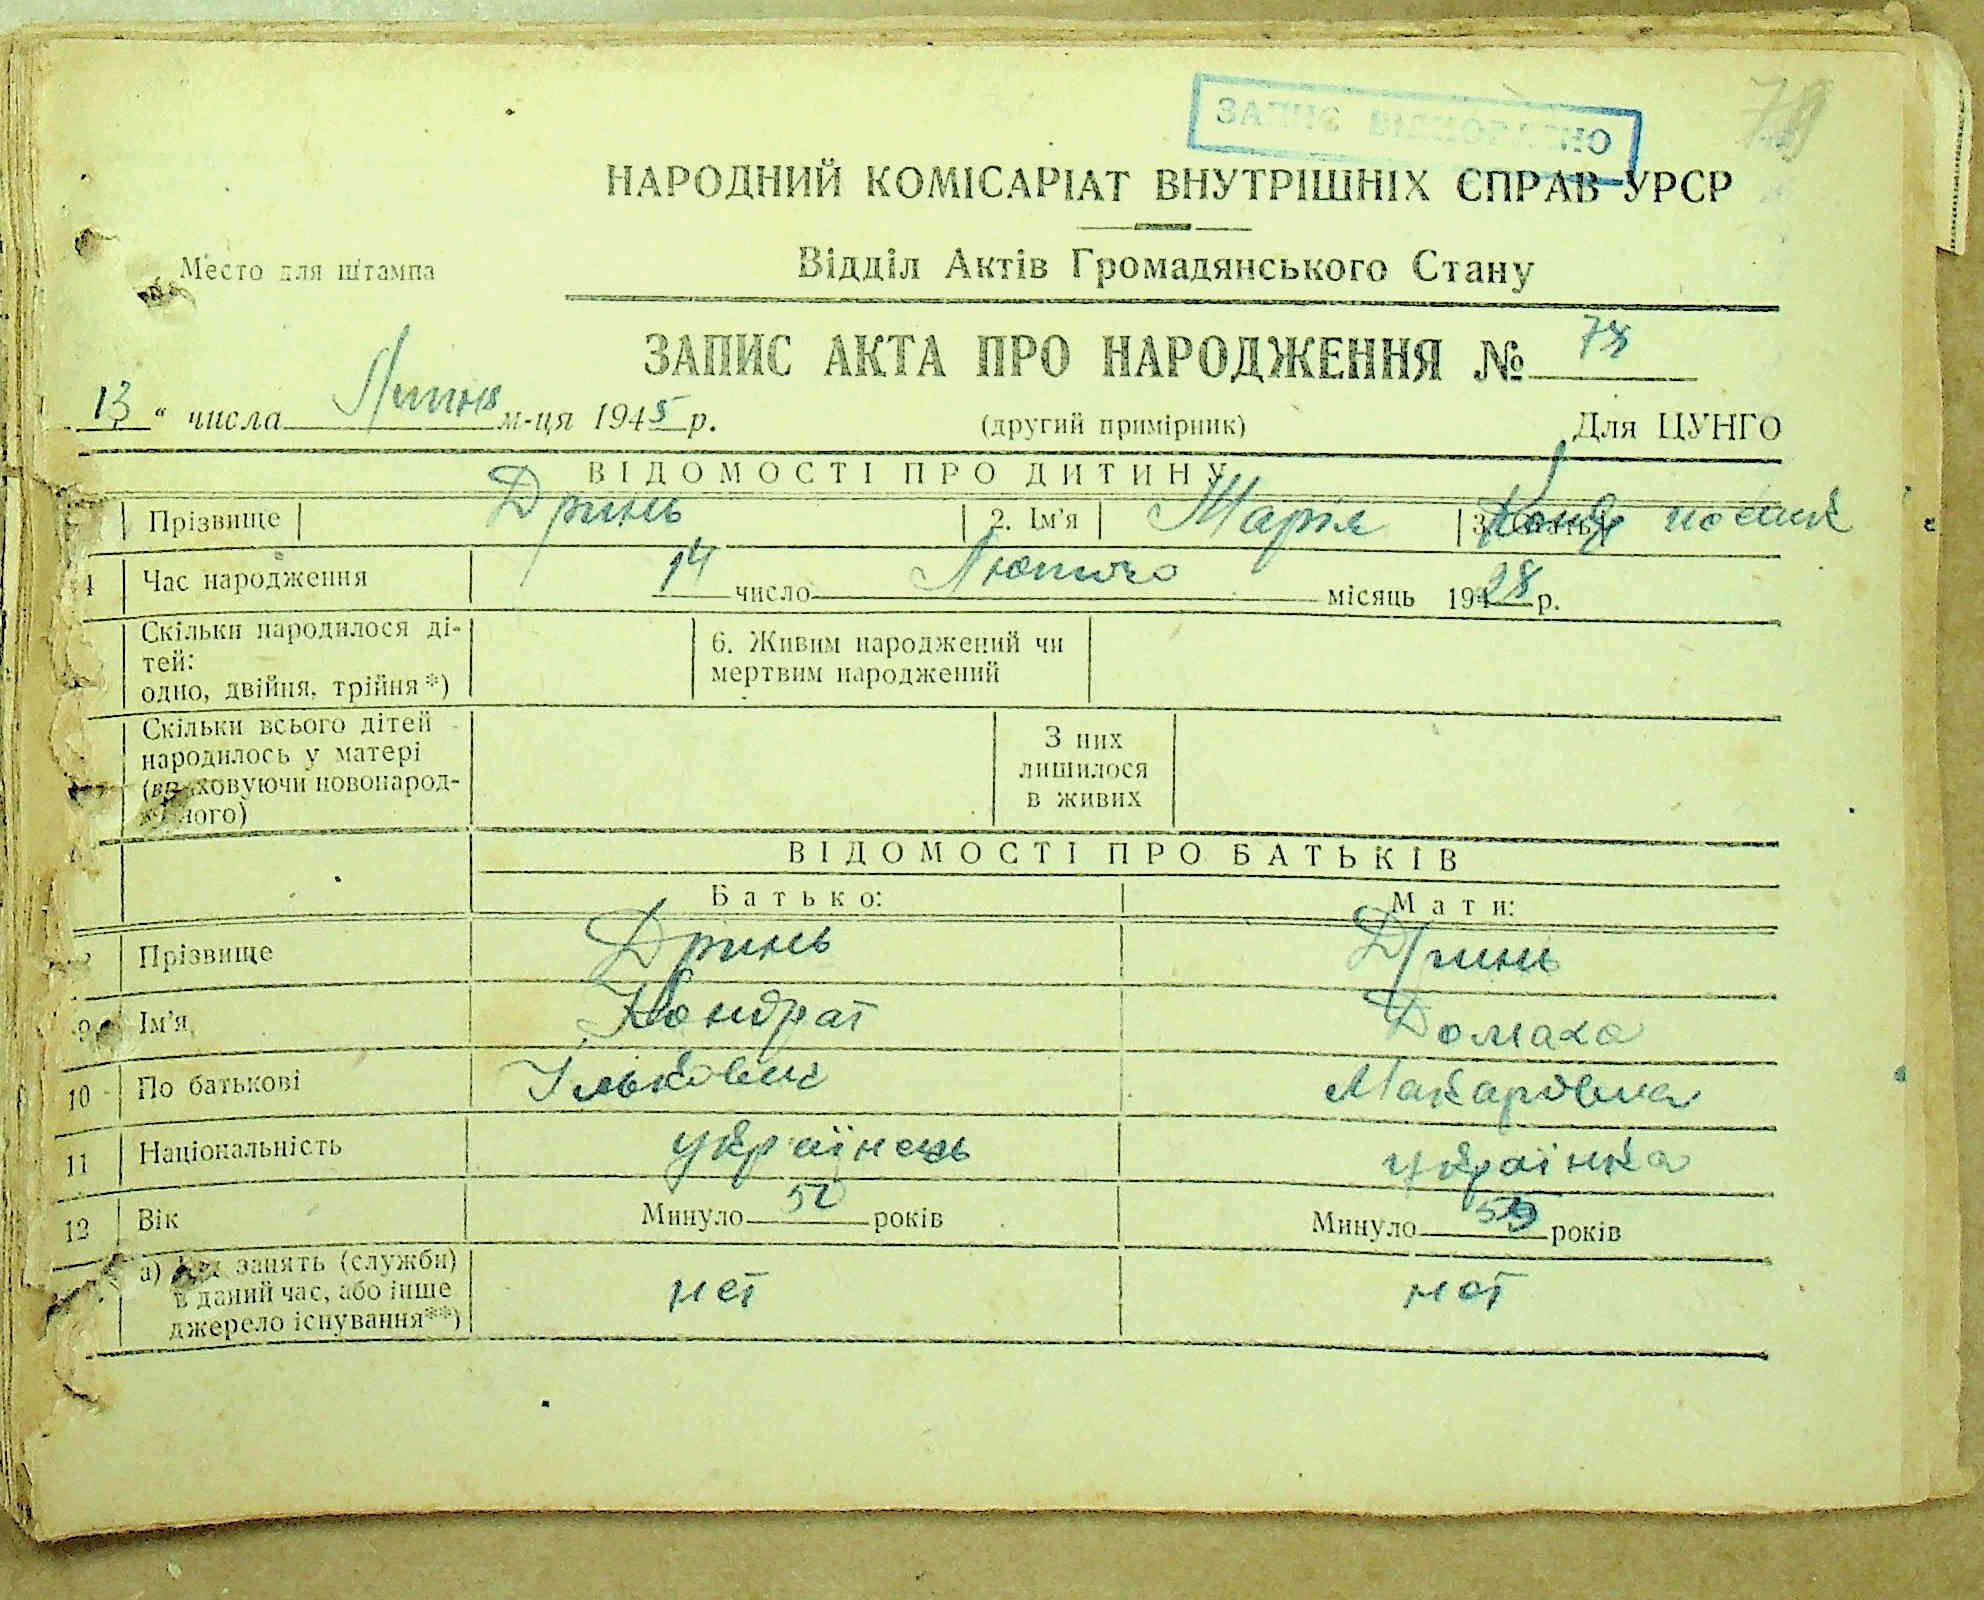 НАРОДНИЙ КОМІСАРІАТ ВНУТРІШНІХ СПРАВ УРСР
Место для штампа
Відділ Актів Громадянського Стану
ЗАПИС АКТА ПРО НАРОДЖЕННЯ №
13 " числа Липня м-ця 1945 р. (другий примірник) Для ЦУНГО
ВІДОМОСТІ ПРО ДИТИНУ
Прізвище Дринь 2. Ім'я Марія
4 Час народження 14 число Лютого місяць 1928 р.
Скільки народилося ді-
тей:
одно, двійня, трійня*)
6. Живим народжений чи
мертвим народжений
Скільки всього дітей
народилось у матері
(враховуючи новонарод-
ного)
З них
лишилося
в живих
ВІДОМОСТІ ПРО БАТЬКІВ
Батько: Мати:
Прізвище Дринь Дринь
9 Ім'я Кондрат Домаха
10 По батькові Ількович Макаровна
11 Національність українець українка
12 Вік Минуло 52 років Минуло років
а) занять (служби)
в даний час, або інше
джерело існування**)
нет нет